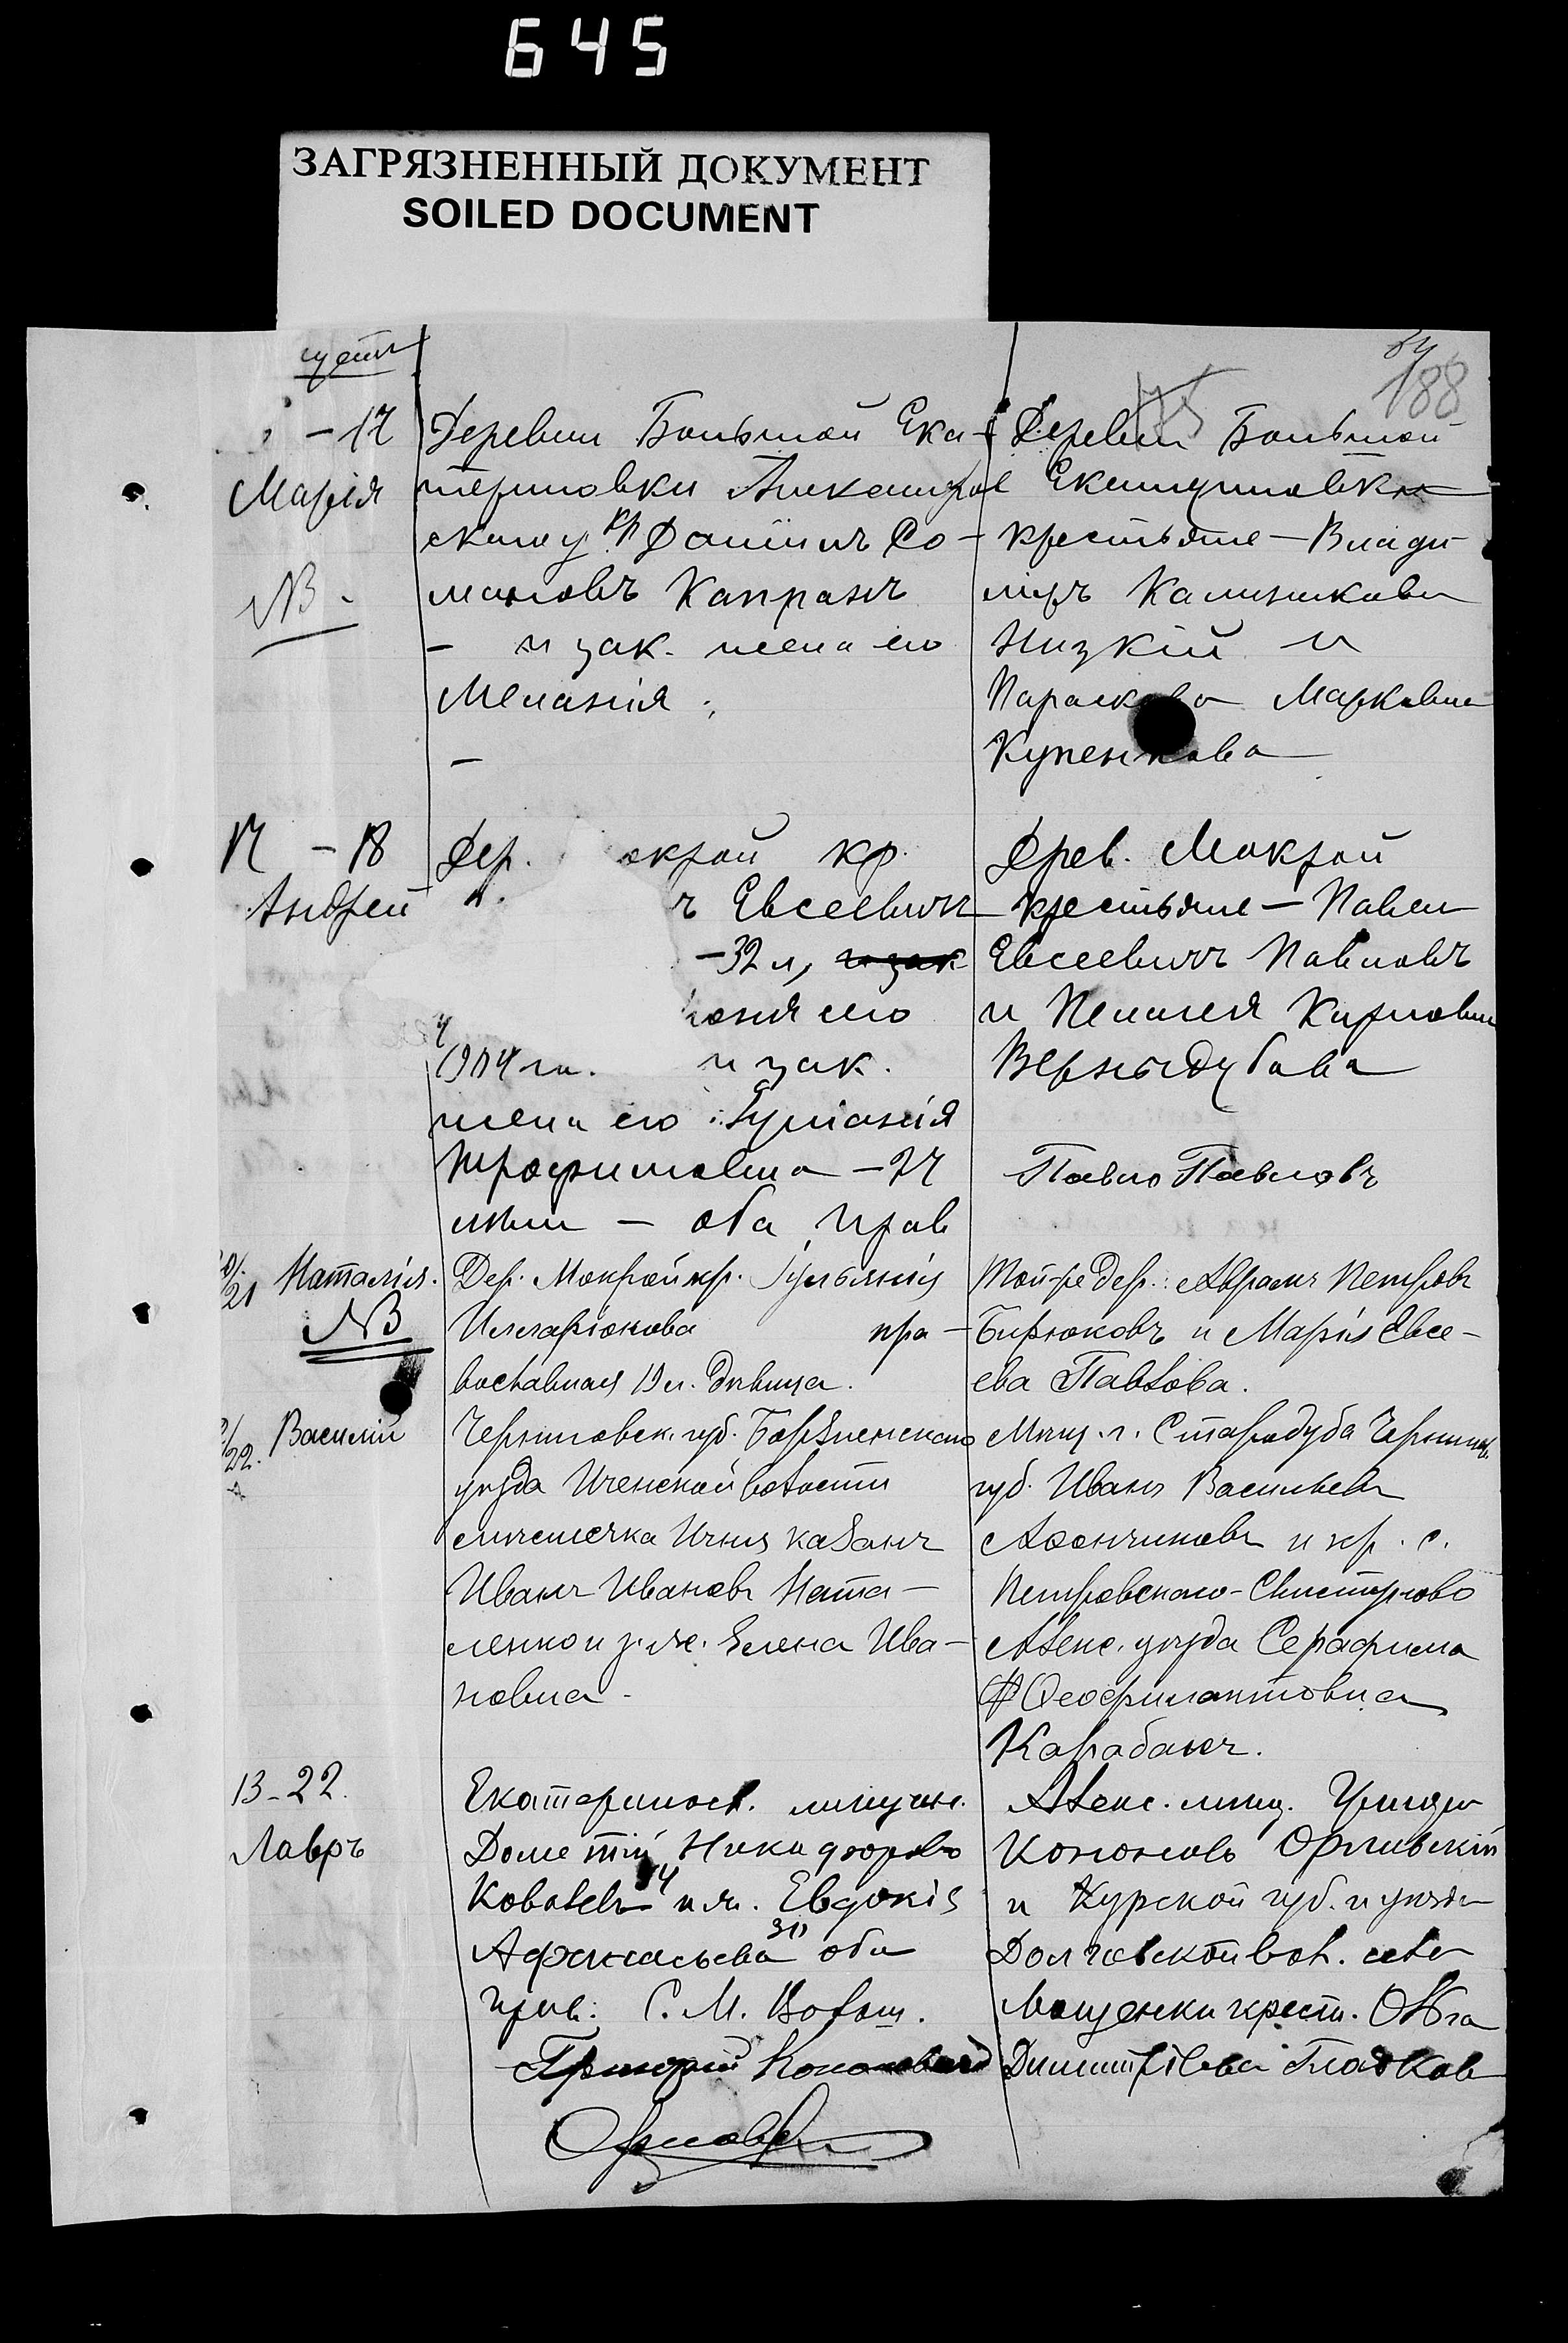 645
ЗАГРЯЗНЕННЫЙ ДОКУМЕНТ
SOILED DOCUMENT
188
- 17
Марія
NB.
Деревни Большой Ека-
териновки Александров
скаго у. кр Даніилъ Со-
мановъ Капранъ
- и зак. жена его
Меланія
Деревни Большой
Екатериновки
крестьяне - Влади
міръ Калиниковъ
Низкій и
Параскева Марковна
18
Андрей
Дер. окрой кр.
ъ Евсеевичъ
-32 л, и зак
его
и зак.
жена его
Трофимовна - 24
лѣтъ - оба прав
Древ. Мокрой
крестьяне - Павелъ
Евсеевичъ Павловъ
и Пелагея Карповна
Вернидубова
Павло Павловъ
21 Наталія.
NB
Дер. Мокрой кр. Іульянія
Илларіонова пра-
вославная 19 л. дѣвица.
Той-же дер.: Аврамъ Петровъ
Бирюковъ и Марія Евсе-
ева Павлова.
22. Василій
Черниговск. губ. Борзненскаго
уѣзда Иченской волости
мѣстечка Ичня казакъ
Иванъ Ивановъ Ната-
ленко и з. ж. Елена Ива-
новна.
Мѣщ. г. Стародуба Черниг.
губ. Иванъ Васильевъ
Афончиковъ и кр. с.
Петровского-Свистуново
Алекс. уѣзда Серафима
Феофилактовна
Карабанъ.
13-22.
Лавръ
Екатеринос. мѣщан.
Дометій Никифоровъ
Ковалевъ и ж. Евдокія
Афанасьева оба
прав. С. М. Волош.
Григорій Кононовичъ
Орловскій
Алекс. мѣщ. Григорій
Кононовъ Орловскій
и Курской губ. и уѣзда
Долговской вол. села
Мощенки крест. Ольга
Димитріева Гладкова